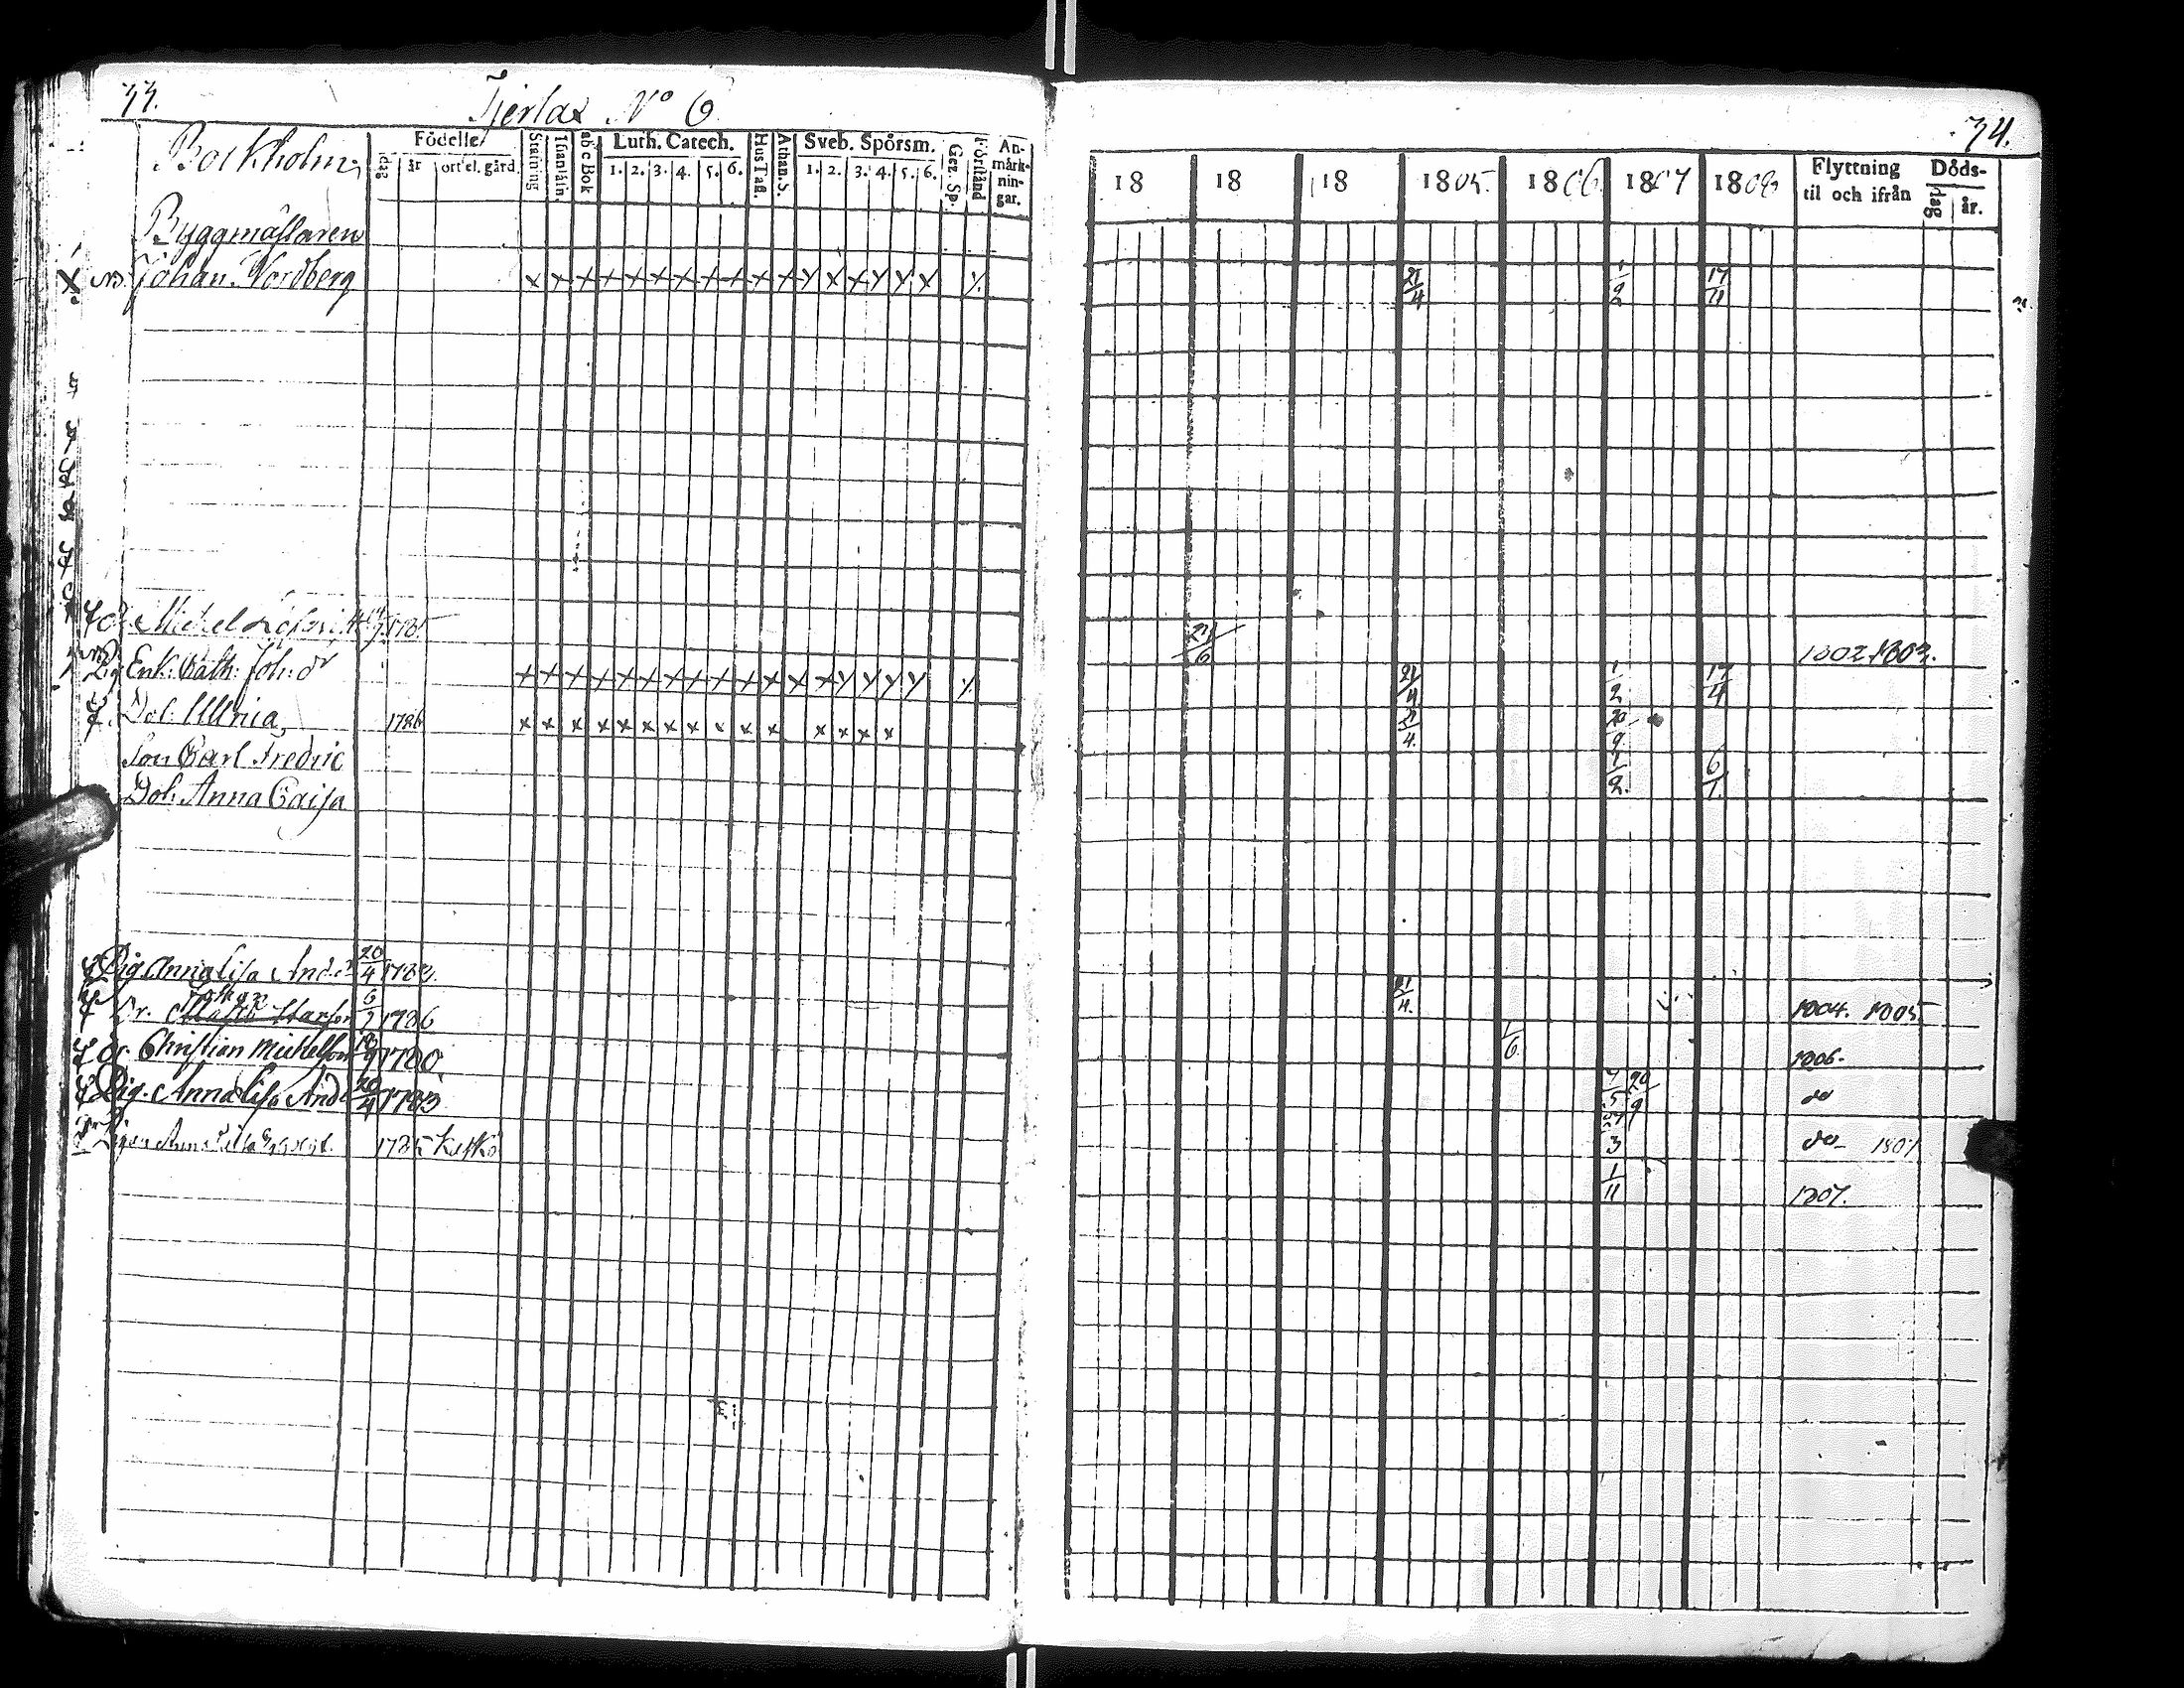 33.
Tjerlax No 6
Bockholm,
Födelse
dag
år
ort el. gård.
Stafning
Innanläsn.
abc Bok
Luth. Catech.
1. 2. 3. 4. 5. 6.
Hus Tafl.
Athan. S.
Sveb. Spörsm.
1. 2. 3. 4. 5. 6.
Gez. Sp.
Förstånd
An-
märk-
nin-
gar.
Byggmästaren
Johan Nordberg
Michel 1785
Enk: Cath: Joh: dr
Dot. Ulrica 1786
Son Carl Fredric
Dot. Anna Caisa
Pig. Anna Lisa And. dr 20/4 1783.
Johan
Dr. Matts 6/7 1786
Dr. Christian Michelsson 1780.
Pig. Anna Lisa And 20/4 1783
Pigan Anna Lisa 1785
34.
18 18 18 1805. 1806. 1807 1808
Flyttning
til och ifrån
Döds-
dag
år.
21/4 1/2 17/11
21/6 1802 1803.
21/4 1/2 17/4
21/4 20/9
1/2 6/1
21/4. 1804. 1805
1/6 1806.
7/5 20/9 do
3 do 1807
1/11 1807.